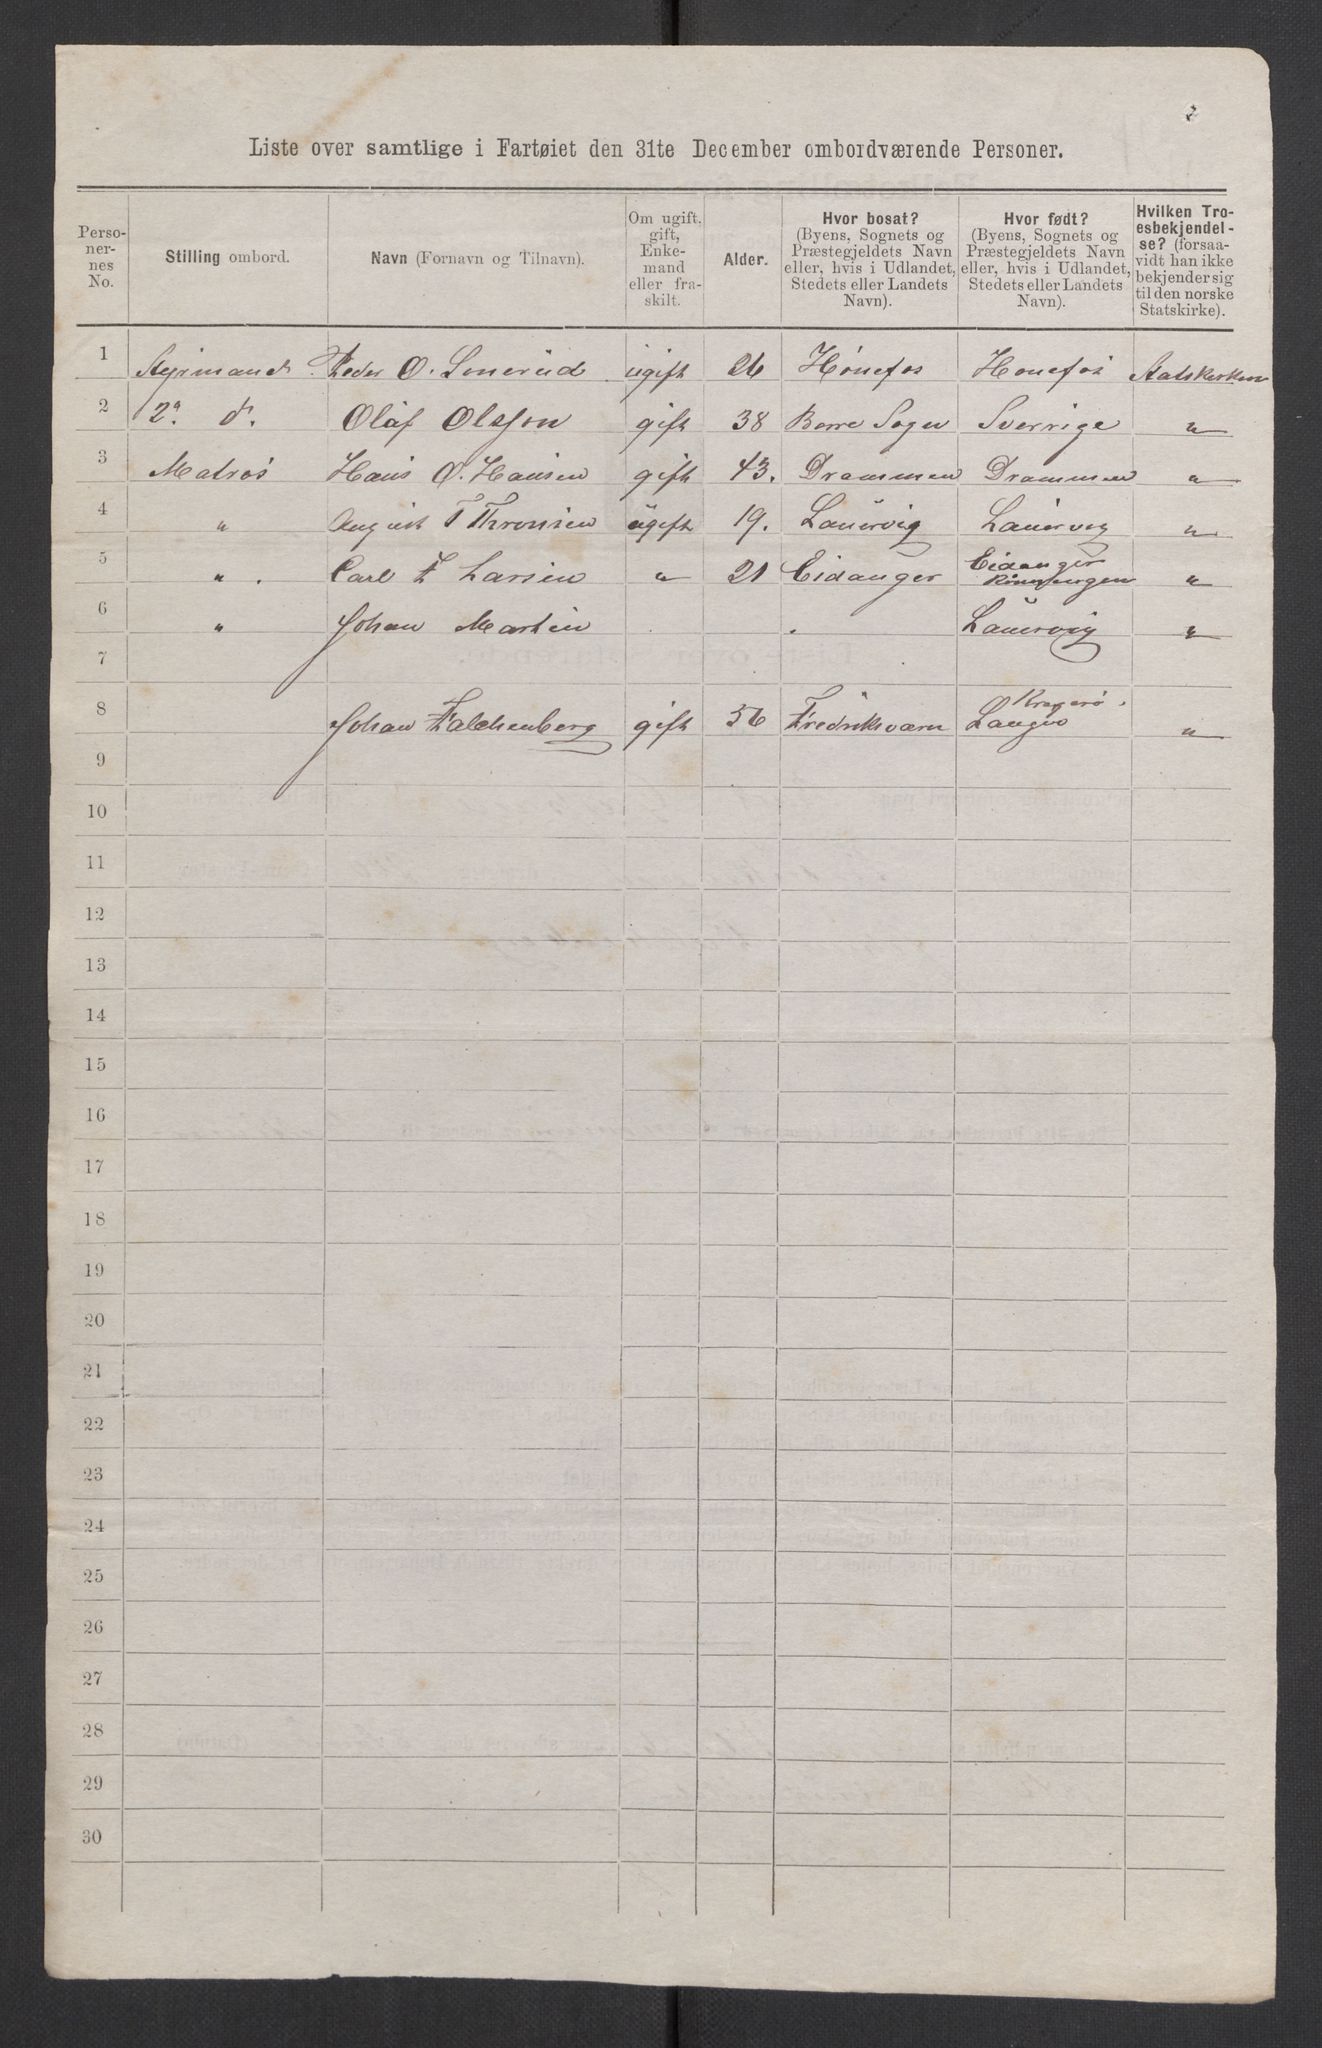 2
Liste over samtlige i Fartøiet den 31te December ombordværende Personer.
Perso-
ner-
nes
No.
Stilling ombord.
Navn (Fornavn og Tilnavn).
Om ugift,
gift,
Enke-
mand
eller fra-
skilt.
Alder.
Hvor bosat?
(Byens, Sognets og
Præstegjeldets Navn
eller, hvis i Udlandet,
Stedets eller Landets
Navn).
Hvor født?
(Byens, Sognets og
Præstegjeldets Navn
eller, hvis i Udlandet,
Stedets eller Landets
Navn).
Hvilken Tro-
esbekjendel-
se? (forsaa-
vidt han ikke
bekjender sig
til den norske
Statskirke).
1 Styrmand Peder O. Sonerud ugift 26 Hönefos Hönefos Statskirken
2 2n. do. Olaf Olsson gift 38 Borre Sogn Sverrige "
3 Matros Hans O. Hansen gift 43. Drammen Drammen "
4 " August T Thronsen ugift 19. Laurvig Laurvig "
5 " . Carl F Larsen " 21 Eidanger Eidanger "
6 " Johan Martin . Laurvig "
7
8 Johan Falchenberg gift 56 Fredriksværn Kragerö . Langö "
9
10
11
12
13
14
15
16
17
18
19
20
21
22
23
24
25
26
27
28
29
30